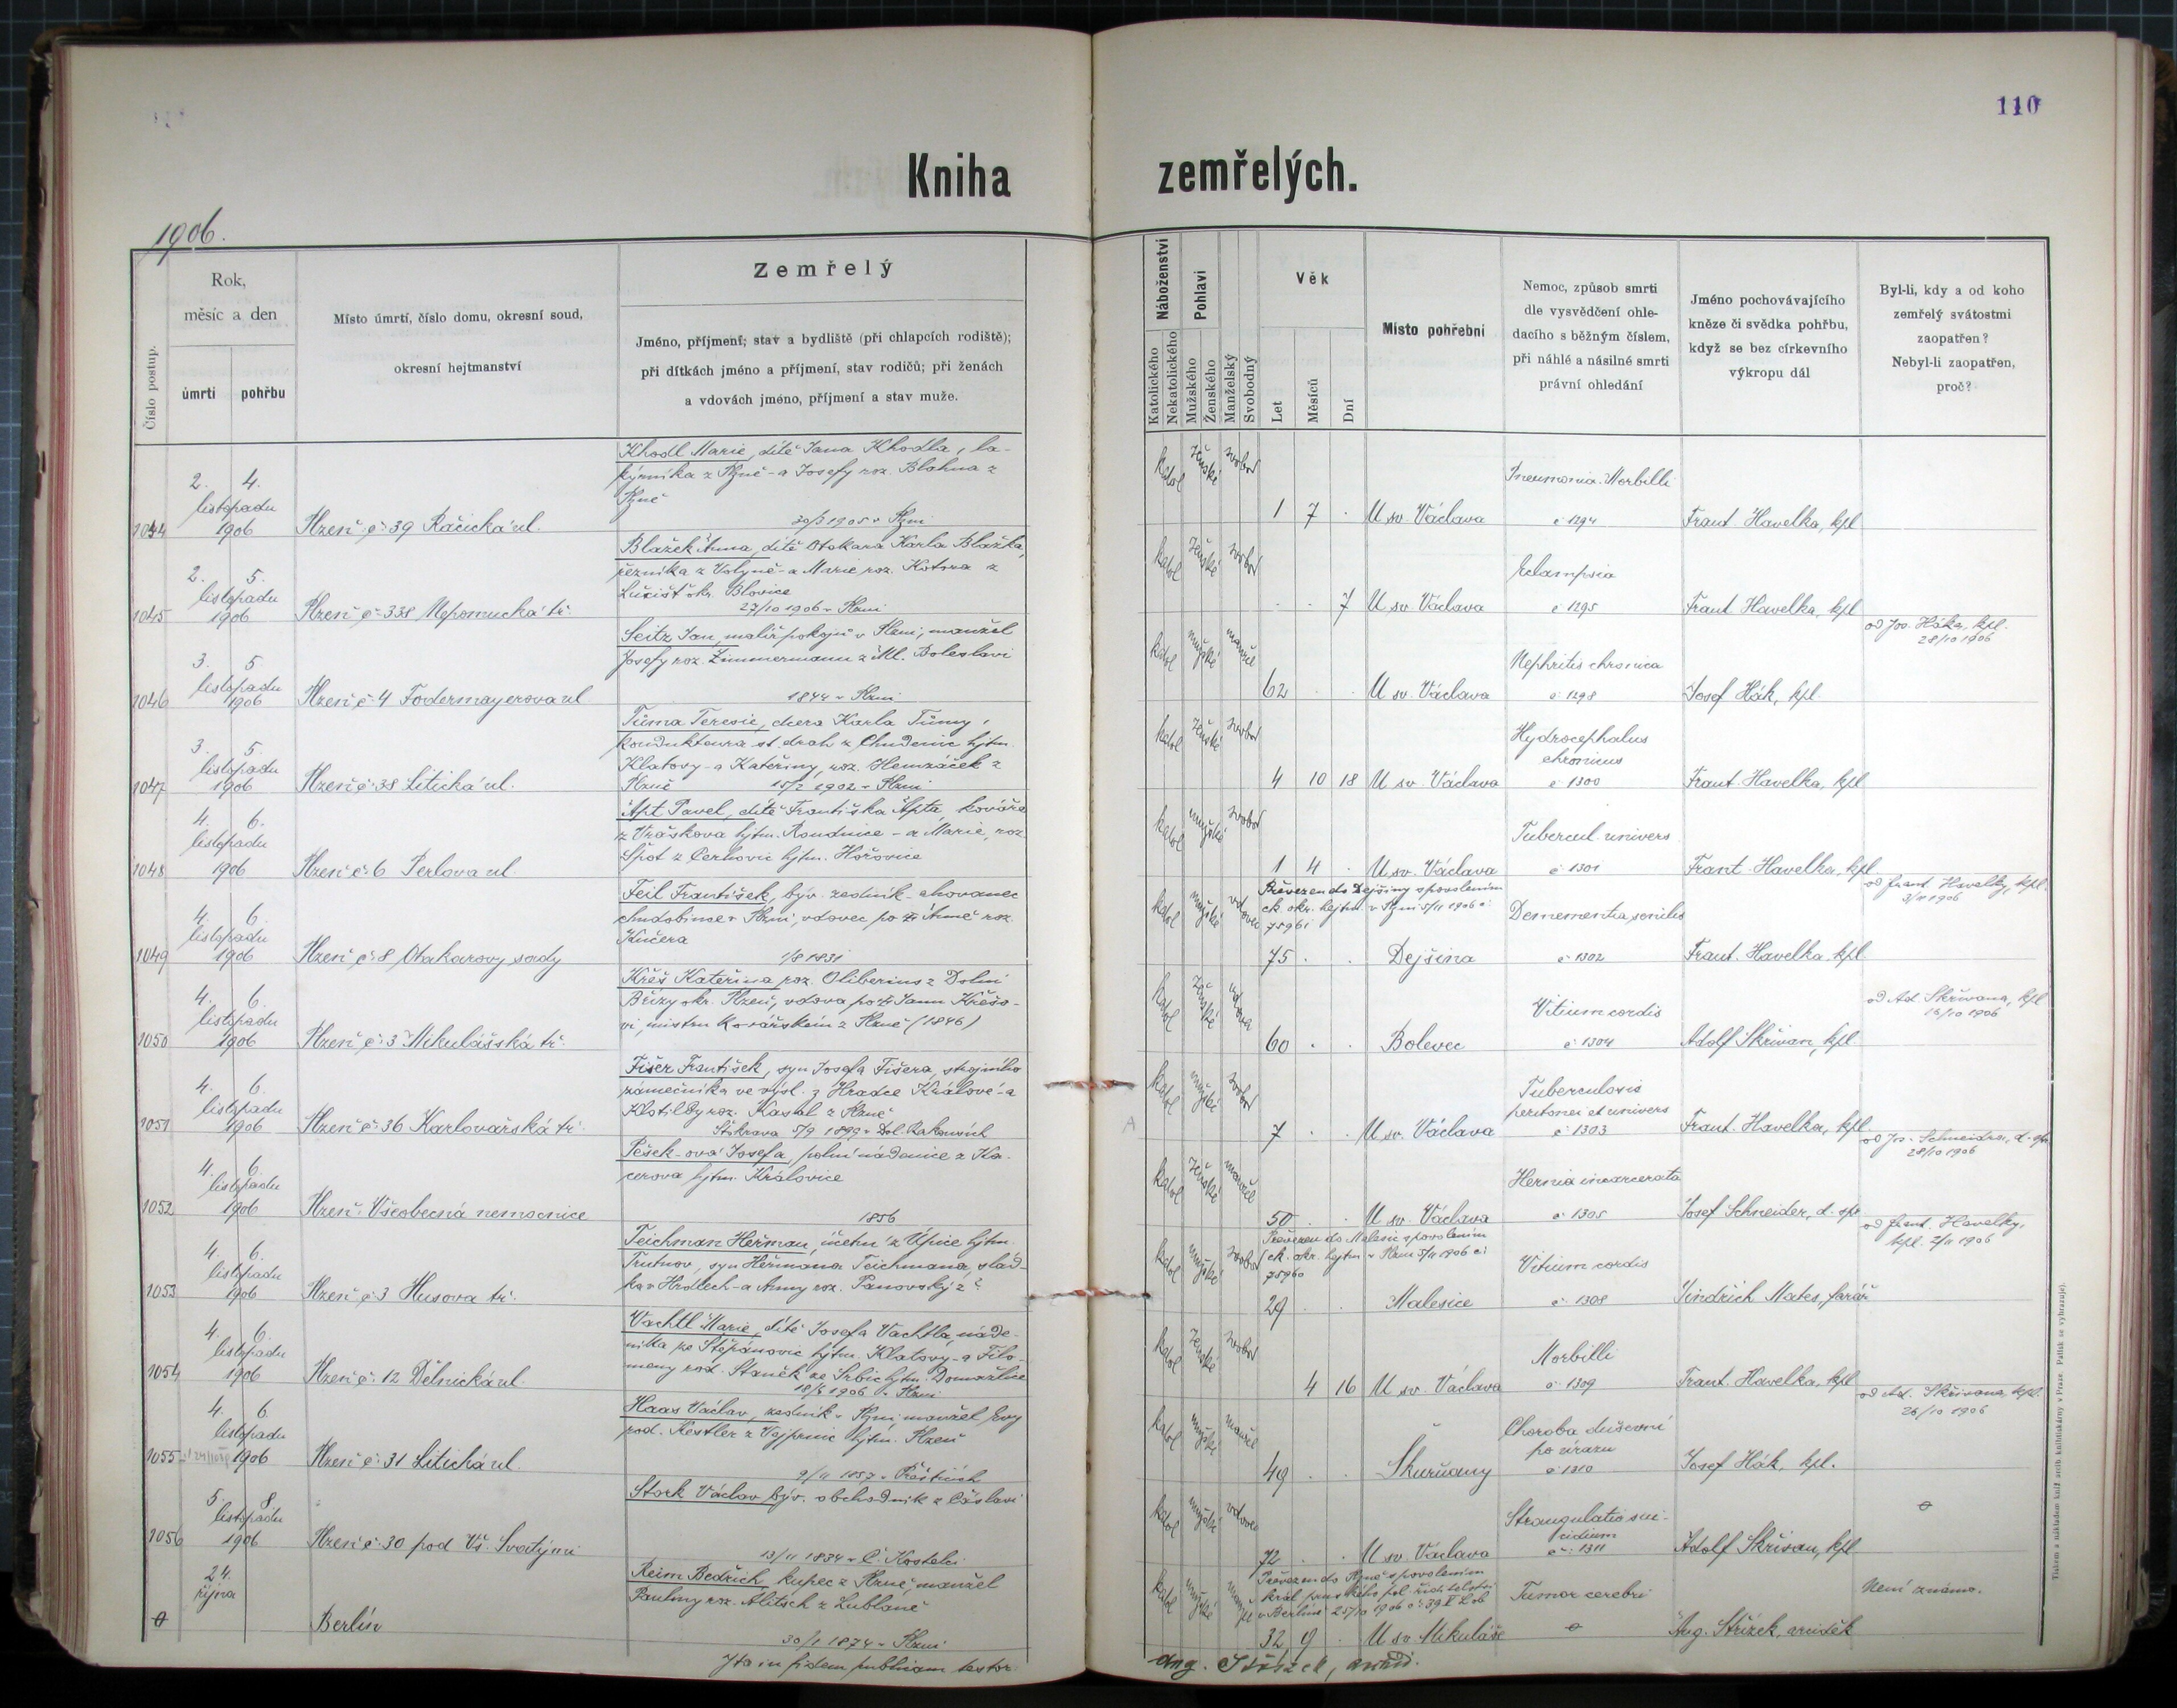 110
Kniha zemřelých.
1906.
Číslo postup.
Rok,
měsíc a den
úmrtí
pohřbu
Místo úmrtí, číslo domu, okresní soud,
okresní hejtmanství
Zemřelý
Jméno, příjmení; stav a bydliště (při chlapcích rodiště);
při dítkách jméno a příjmení, stav rodičů; při ženách
a vdovách jméno, příjmení a stav muže.
Náboženství
Katolického
Nekatolického
Pohlaví
Mužského
Ženského
Manželský
Svobodný
Věk
Let
Měsíců
Dní
Místo pohřební
Nemoc, způsob smrti
dle vysvědčení ohle-
dacího s běžným číslem,
při náhlé a násilné smrti
právní ohledání
Jméno pochovávajícího
kněze či svědka pohřbu,
když se bez církevního
výkropu dál
Byl-li, kdy a od koho
zemřelý svátostmi
zaopatřen?
Nebyl-li zaopatřen,
proč?
1044
2. 4.
listopadu
1906
Plzeň č. 39 Račická ul.
Khodl Marie, dítě Jana Khodla, la-
kýrníka z Plzně - a Josefy roz. Blahna z
Plzně
30/3 1905 v Plzni
katol ženské svobod
1 7 .
U sv. Václava
Pneumonia. Morbilli
č. 1294
Frant. Havelka, kpl
1045
2. 5.
listopadu
1906
Plzeň č. 338 Nepomucká tř.
Blažek Anna, dítě Otokara Karla Blažka,
řezníka z Volyně - a Marie roz. Kotora z
Lučišť okr. Blovice
27/10 1906 v Plzni
katol ženské svobod
. . 7
U sv. Václava
Eclampsia
č. 1295
Frant. Havelka, kpl
1046
3. 5
listopadu
1906
Plzeň č. 4 Fodermayerova ul.
Seitz Jan, malíř pokojů v Plzni, manžel
Josefy roz. Zimmermann z Ml. Boleslavi
1844 v Plzni
katol mužské manžel
62 . .
U sv. Václava
Nephritis chronica
č. 1298
Josef Hák, kpl.
od Jos. Háka, kpl.
28/10 1906
1047
3. 5.
listopadu
1906
Plzeň č. 38 Litická ul.
Tůma Terezie, dcera Karla Tůmy,
kondukteura st. drah z Chudenic hjtm.
Klatovy - a Kateřiny, roz. Hemzáček z
Plzně 15/2 1902 v Plzni
katol ženské svobod
4 10 18
U sv. Václava
Hydrocephalus
chronicus
č. 1300
Frant. Havelka, kpl
1048
4. 6.
listopadu
1906
Plzeň č. 6 Perlova ul.
Apt Pavel, dítě Františka Apta, kováře
z Vraškova hjtm. Roudnice - a Marie, roz.
Špot z Cerhovic hjtm. Hořovice
katol mužské svobod
1 4 .
U sv. Václava
Tubercul. univers
č. 1301
Frant. Havelka, kpl
1049
4. 6.
listopadu
1906
Plzeň č. 8 Otakarovy sady
Feil František, býv. zedník - chovanec
chudobince v Plzni, vdovec po Anně roz.
Kučera
1/8 1831
katol mužské vdovec
Převezen do Dejšiny s povolením
ck. okr. hejtm. v Plzni 5/11 1906 č.
75961
75 .
Dejšina
Dementia senilis
č. 1302
Frant. Havelka, kpl
od Frant. Havelky, kpl.
3/11 1906
1050
4. 6.
listopadu
1906
Plzeň č. 3 Mikulášská tř.
Křeš Kateřina roz. Oliberius z Dolní
Břízy okr. Plzeň, vdova po Janu Křešo-
vi, mistru kovářském z Plzně (1846)
katol ženské vdova
60 . .
Bolevec
Vitium cordis
č. 1304
Adolf Skřivan, kpl
od Ad. Skřivana, kpl
16/10 1906
1051
4. 6.
listopadu
1906
Plzeň č. 36 Karlovarská tř.
Fišer František, syn Josefa Fišera, strojního
zámečníka ve výsl. z Hradce Králové - a
Klotildy roz. Kasal z Plzně
Stokrava 5/9 1899 v Dol. Rakousích
katol mužské svobod
7 . .
U sv. Václava
Tuberculosis
peritonei et univers
č. 1303
Frant. Havelka, kpl
1052
4. 6.
listopadu
1906
Plzeň: Všeobecná nemocnice
Pešek-ová Josefa, polní nádenice z Ka-
cerova hjtm. Kralovice
1856
katol ženské manžel
50 . .
U sv. Václava
Hernia incarcerata
č. 1305
Josef Schneider, d. spr.
od Jos. Schneidra, d. spr.
28/10 1906
1053
4. 6.
listopadu
1906
Plzeň č. 3 Husova tř.
Teichman Heřman, účetní z Úpice hjtm.
Trutnov, syn Heřmana Teichmana, slád-
ka v Hradech - a Anny roz. Panovský z ?
katol mužské svobod
Převezen do Malesic s povolením
ck. okr. hejtm. v Plzni 5/11 1906 č.
75960
29 . .
Malesice
Vitium cordis
č. 1308
Jindřich Mates, farář
od Frant. Havelky,
kpl. 2/11 1906
1054
4. 6.
listopadu
1906
Plzeň č. 12 Dělnická ul.
Vachtl Marie, dítě Josefa Vachtla, náde-
níka ze Štěpánovic hjtm. Klatovy - a Filo-
meny rod. Staněk ze Srbic hjtm. Domažlice
18/6 1906 v Plzni
katol ženské svobod
4 16
U sv. Václava
Morbilli
č. 1309
Frant. Havelka, kpl
1055
4. 6.
listopadu
1906
Plzeň č. 31 Litická ul.
Haas Václav, zedník v Plzni, manžel Evy
rod. Kestler z Vejprnic hjtm. Plzeň
9/11 1857 v Přešticích
katol mužské manžel
49 . .
Skurňany
Choroba duševní
po úrazu
č. 1310
Josef Hák, kpl.
od Ad. Skřivana, kpl.
26/10 1906
1056
5. 8.
listopadu
1906
Plzeň č. 30 pod Vš. Svatými
Stork Václav býv. obchodník z Čáslavi
13/11 1834 v Č. Kostelci
katol mužské vdovec
72 . .
U sv. Václava
Strangulatio sui-
cidium
č. 1311
Adolf Skřivan, kpl
24.
října
Berlín
Reim Bedřich, kupec z Plzně, manžel
Pauliny roz. Alitsch z Lublaně
30/1 1874 v Plzni
katol mužské manžel
Převezen do Plzně s povolením
král. pruského pol. ředitelství
v Berlíně 25/10 1906
32 9 .
U sv. Mikuláše
Tumor cerebri
Aug. Střízek, arciděk
Není známo.
Ita in fidem publicam testor:
Aug. Střízek, arcid.
Tiskem a nákladem knižní arcib. knihtiskárny v Praze. Patisk se vyhrazuje).